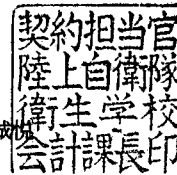 契約担当官
陸上自衛隊
衛生学校
会計課長印